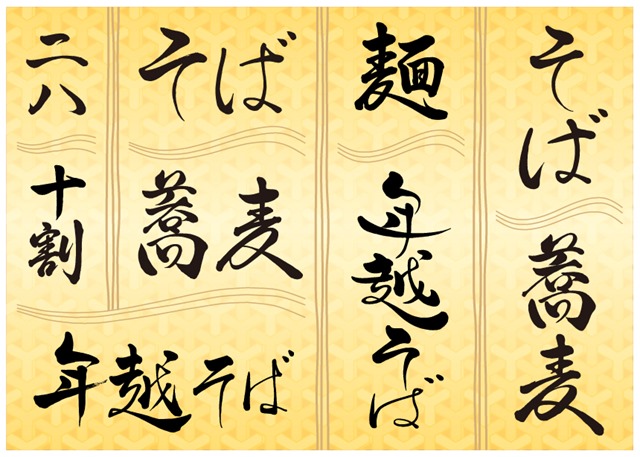 二八
そば
麺
そば
十割
蕎麦
年越そば
蕎麦
年越そば